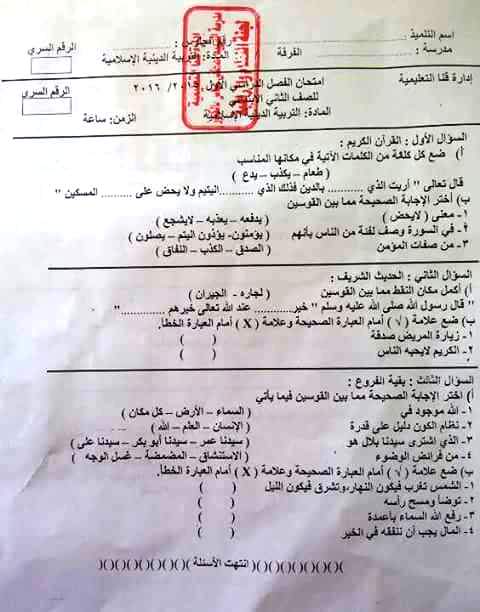 اسم التلميذ :
مدرسة : الفرقة
رقم الجلوس :
المادة: التربية الدينية الإسلامية
الرقم السري
إدارة قنا التعليمية
امتحان الفصل الدراسي الأول ٢٠١٦
للصف الثاني الابتدائي
المادة: التربية الدينية الإسلامية
الزمن: ساعة
الرقم السري
السؤال الأول : القرآن الكريم :
أ) ضع كل كلمة من الكلمات الآتية في مكانها المناسب
( طعام – يكذب – يدع )
قال تعالى " أريت الذي .......... بالدين فذلك الذي ..........اليتيم ولا يحض على .......... المسكين "
ب) أختر الإجابة الصحيحة مما بين القوسين
١- معنى ( لايحض ) ( يدفعه – يعذبه – لايشجع )
٢- في السورة وصف لفئة من الناس بأنهم ( يؤمنون- يؤذون اليتم – يصلون )
٣- من صفات المؤمن ( الصدق – الكذب – النفاق )
السؤال الثاني : الحديث الشريف :
أ) أكمل مكان النقط مما بين القوسين ( لجاره - الجيران )
" قال رسول الله صلى الله عليه وسلم " خير............ عند الله تعالى خيرهم ............ "
ب) ضع علامة ( √ ) أمام العبارة الصحيحة وعلامة ( X ) أمام العبارة الخطأ.
١- زيارة المريض صدقة ( )
٢- الكريم لايحبه الناس ( )
السؤال الثالث : بقية الفروع :
أ) اختر الإجابة الصحيحة مما بين القوسين فيما يأتي
١- الله موجود في ( السماء – الأرض – كل مكان )
٢- نظام الكون دليل على قدرة ( الإنسان – العلم – الله )
٣- الذي اشترى سيدنا بلال هو ( سيدنا عمر – سيدنا أبو بكر – سيدنا على )
٤- من فرائض الوضوء ( الاستنشاق – المضمضة – غسل الوجه )
ب) ضع علامة ( √ ) أمام العبارة الصحيحة وعلامة ( X ) أمام العبارة الخطأ.
١- الشمس تغرب فيكون النهار،وتشرق فيكون الليل ( )
٢- توضأ ومسح رأسه ( )
٣- رفع الله السماء بأعمدة ( )
٤- المال يجب أن ننفقه في الخير ( )
()()()()()()()() انتهت الأسئلة ()()()()()()()()